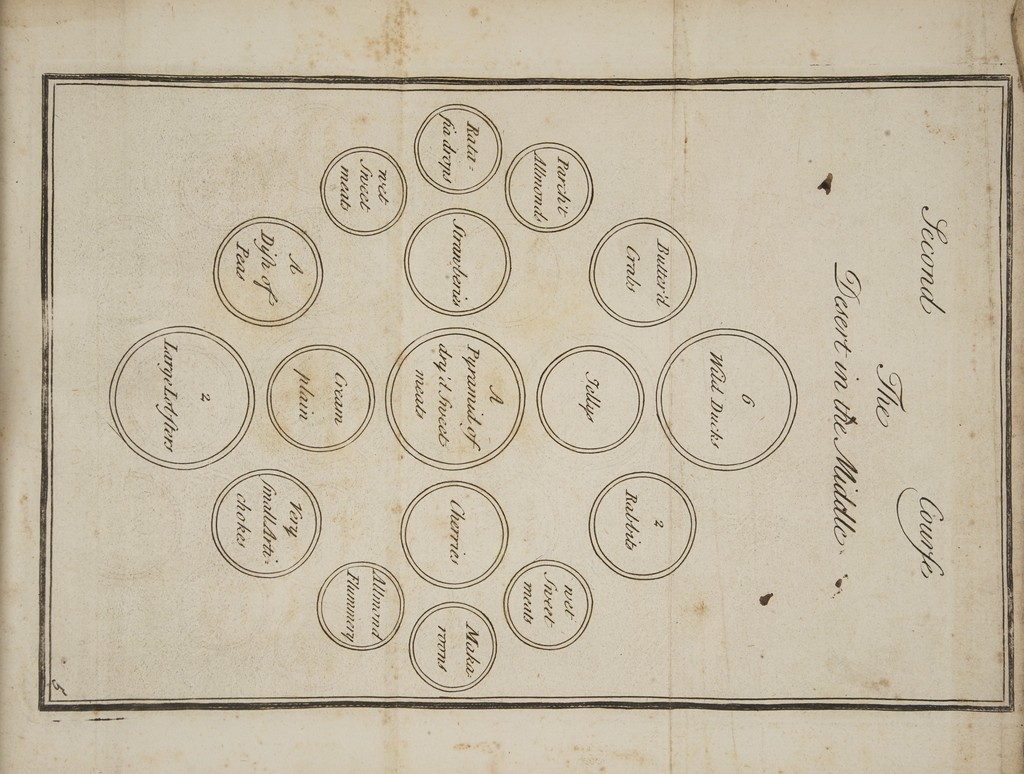 Second Course
The
Desert in the Middle
6
Wild Ducks
Butter'd
Crabs
2
Rabbits
Parch't
Allmonds
Jellys
wet
Sweet
meats
Rata-
fia drops
Strawberris
A
Pyramid of
dry'd Sweet
meats
Cherries
Maka-
roons
wet
Sweet
meats
Cream
plain
Allmond
Flummery
A
Dish of
Peas
Very
small Arti-
chokes
2
Large Lobsters
5